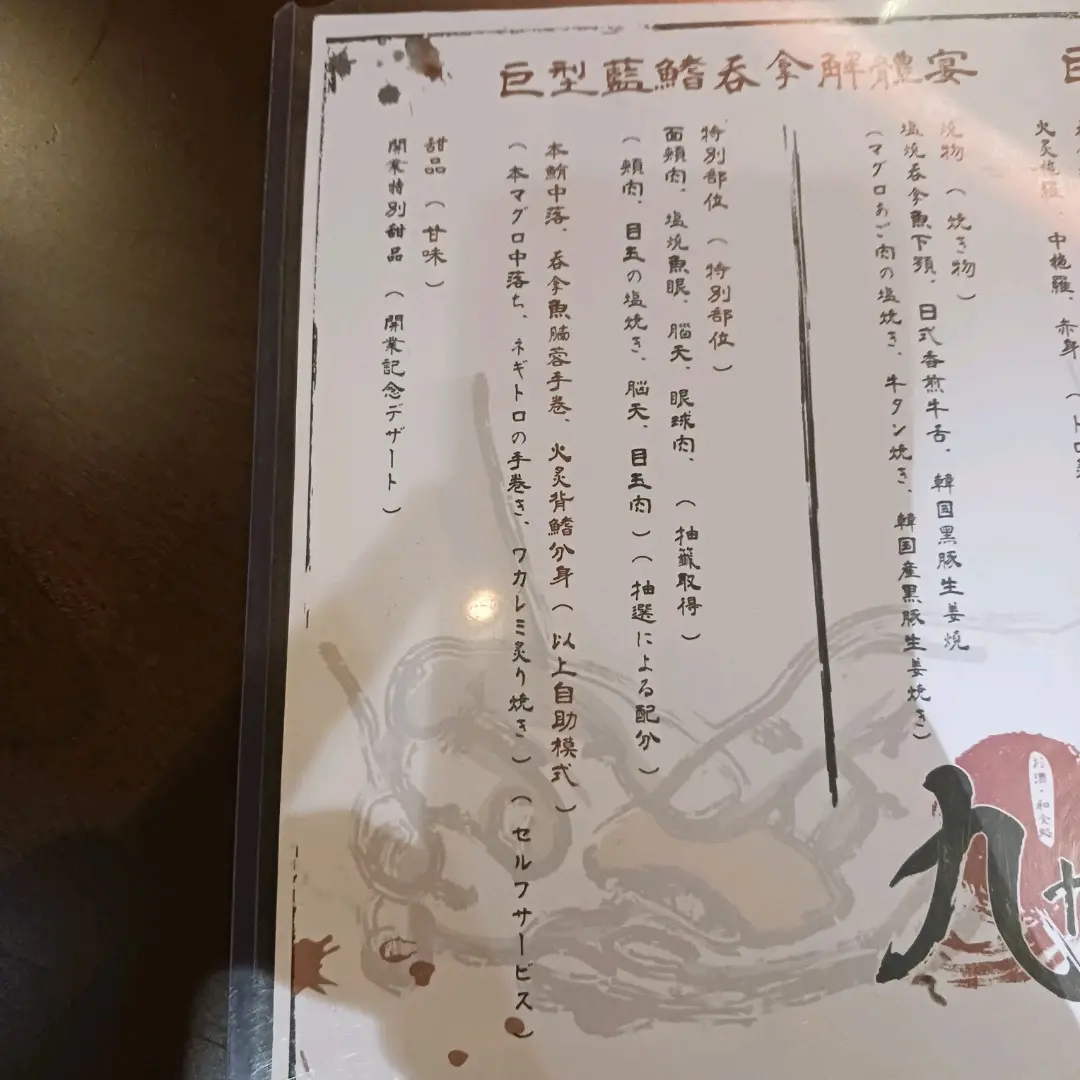 巨型藍鰭吞拿解體宴
火炙拖羅、中拖羅、赤身
燒物（焼き物）
塩燒吞拿魚下顎、日式香煎牛舌、韓国黒豚生姜燒
（マグロあご肉の塩焼き、牛タン焼き、韓国産黒豚生姜焼き）
特別部位（特別部位）
面頰肉、塩燒魚眼、腦天、眼球肉、（抽籤取得）
（頬肉、目玉の塩焼き、脳天、目玉肉）（抽選による配分）
本鮪中落、吞拿魚腩蓉手巻、火炙背鰭分身（以上自助模式）
（本マグロ中落ち、ネギトロの手巻き、ワカレミ炙り焼き）（セルフサービス）
甜品（甘味）
開業特別甜品（開業記念デザート）
お酒・和食処
九